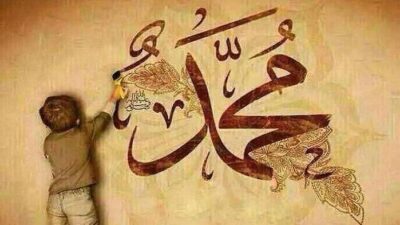 مُحَمَّدٌ
ﷺ